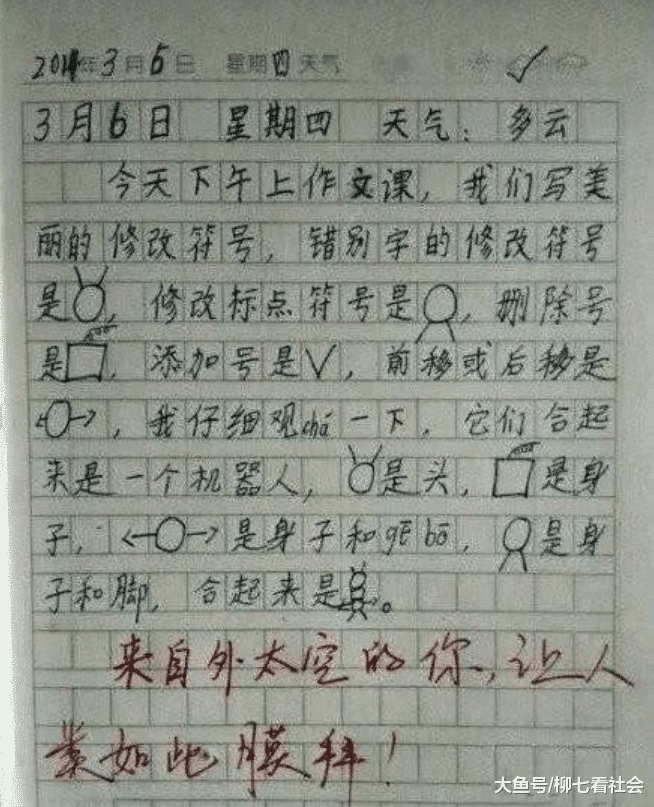 2014年3月6日 星期四 天气
3月6日 星期四 天气：多云
今天下午上作文课，我们写美
丽的修改符号，错别字的修改符号
是，修改标点符号是，删除号
是，添加号是√，前移或后移是
←○→，我仔细观chá一下，它们合起
来是一个机器人，是头，是身
子，←○→是身子和gē bō，是身
子和脚，合起来是。
来自外太空的你，让人
类如此膜拜！
大鱼号/柳七看社会